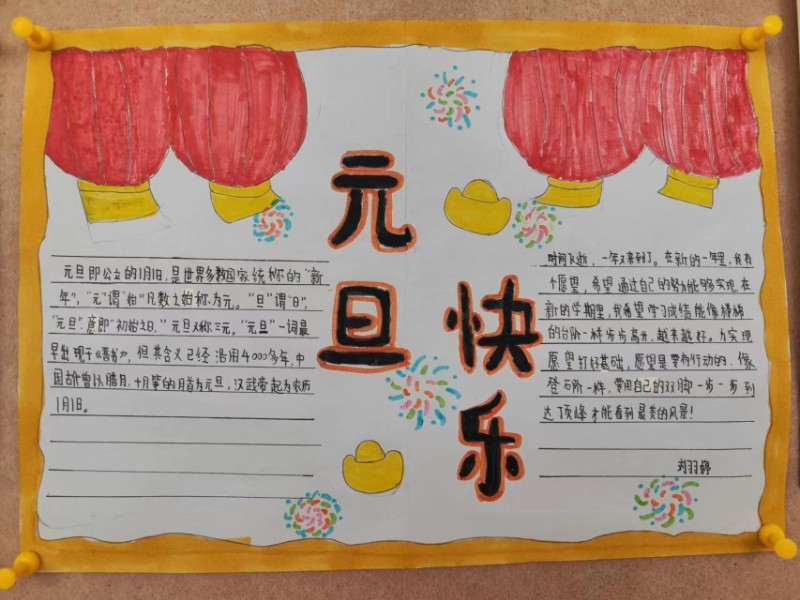 元旦
快乐
元旦即公立的1月1日,是世界多数国家统称的“新
年”,“元”谓“始”凡数之始称为元。“旦”谓“日”,
“元旦”意即“初始之日,”元旦又称三元。“元旦”一词最
早出现于《晋书》,但其含义已经沿用4000多年,中
国古代曾以腊月、十月等的月首为元旦,汉武帝起为农历
1月1日。
时间飞逝,一年又来到了。在新的一年里,我有
个愿望,希望通过自己的努力能够实现,在
新的学期里,我希望学习成绩能像楼梯
的台阶一样步步高升,越来越好。为实现
愿望打好基础,愿望是要有行动的,像
登石阶一样,要用自己的双脚一步一步到
达顶峰才能看到最美的风景!
刘羽